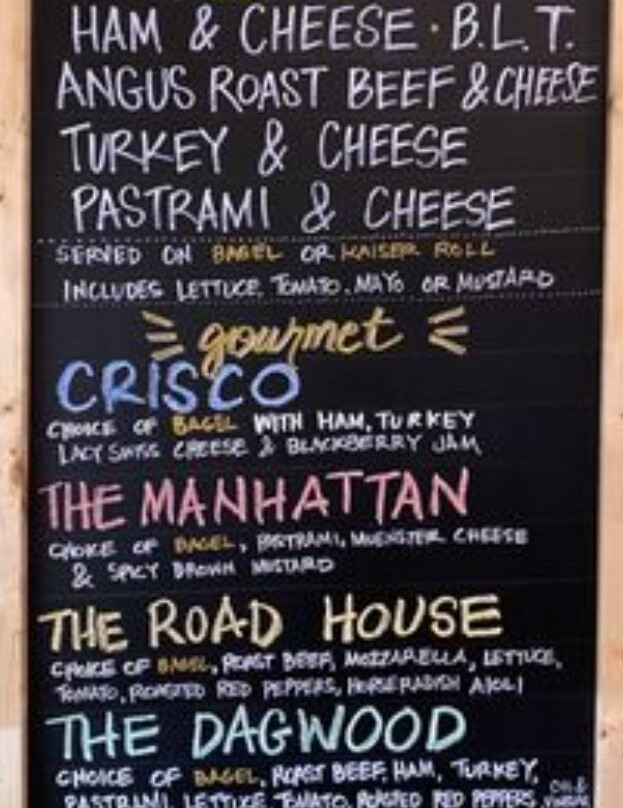 HAM & CHEESE · B.L.T.
ANGUS ROAST BEEF & CHEESE
TURKEY & CHEESE
PASTRAMI & CHEESE
SERVED ON BAGEL OR KAISER ROLL
INCLUDES LETTUCE, TOMATO, MAYO OR MUSTARD
gourmet
CRISCO
CHOICE OF BAGEL WITH HAM, TURKEY
LACY SWISS CHEESE & BLACKBERRY JAM
THE MANHATTAN
CHOICE OF BAGEL, PASTRAMI, MUENSTER CHEESE
& SPICY BROWN MUSTARD
THE ROAD HOUSE
CHOICE OF BAGEL, ROAST BEEF, MOZZARELLA, LETTUCE,
TOMATO, ROASTED RED PEPPERS, HORSERADISH AIOLI
THE DAGWOOD
CHOICE OF BAGEL, ROAST BEEF, HAM, TURKEY,
PASTRAMI, LETTUCE, TOMATO, ROASTED RED PEPPERS, OIL &